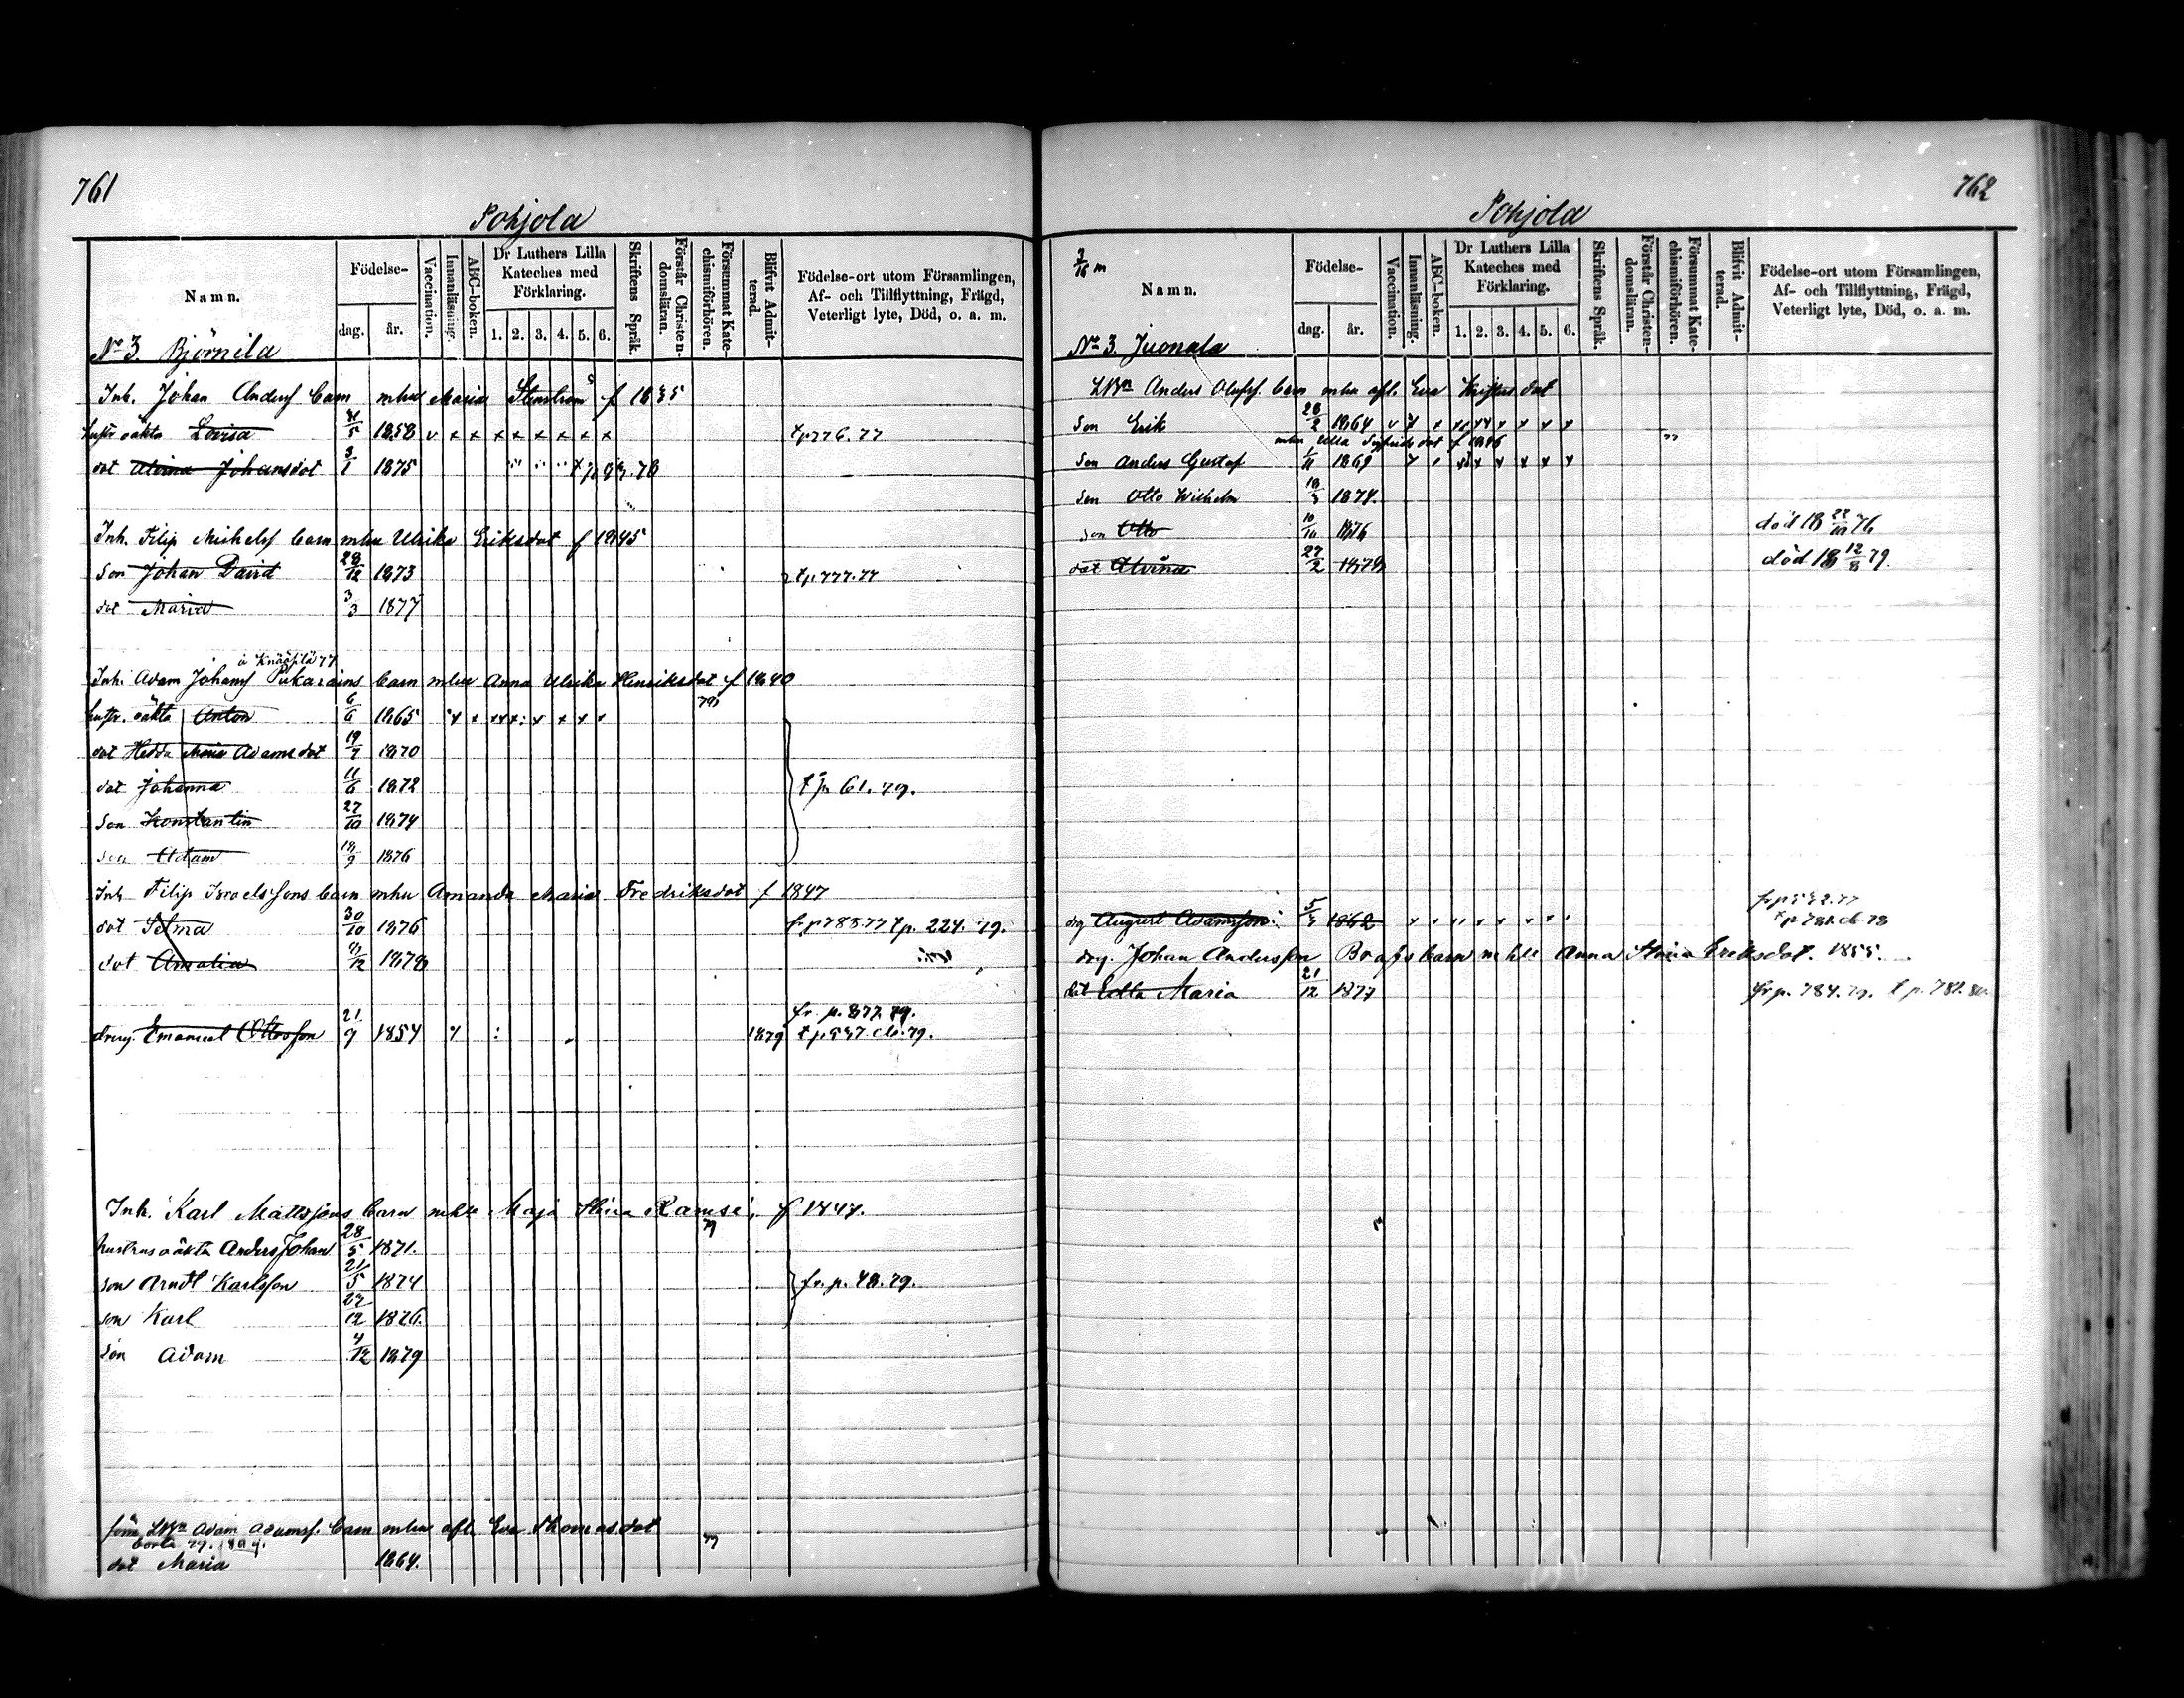 761
Pohjola
Namn.
Födelse-
dag. år.
Vaccination.
Innanläsning.
ABC-boken.
Dr Luthers Lilla Kateches med Förklaring.
1. 2. 3. 4. 5. 6.
Skriftens Språk.
Förstår Christen-domsläran.
Försummat Kate-chismiförhören.
Blifvit Admit-terad.
Födelse-ort utom Församlingen, Af- och Tillflyttning, Frägd, Veterligt lyte, Död, o. a. m.
No 3. Björnila
Inh. Johan Anders barn mhu Maria f 1835
hustr oäkta Lovisa 1858 v x x x x x x x x tp 776.77
dot Alvina Johansdot 3/1 1875
Inh. Filip Michelss barn mhu Ulrika Eriksdot f 1845
Son Johan David 28/12 1873 tp. 777.77
dot Maria 3/3 1877
Inh. Adam Johanss barn mhu Anna Ulrika Henriksdot f 1840
hustr. oäkta Anton 6/6 1865
dot Hedda Maria Adamsdot 1870
dot Johanna 11/6 1872 t p. 61.79.
Son Konstantin 27/10 1874
son Adam 18/9 1876
Inh Filip Israelssons barn mhu Amanda Maria Fredriksdot f 1847
dot Selma 30/10 1876 fr p 783.77 tp. 224.79.
dot Amalia 1878
fr. p. 877.79.
dreng. Emanuel Ottosson 21/9 1854 1879
Inh. Karl Mattssons barn mhu Maja Stina Ramsi, f 1847.
hustrus oäkta Anders Johan 28/5 1871.
son Arndt Karlsson 21/5 1874 fr. p. 48.79.
son Karl 27/12 1876.
son Adam 4/12 1879
LBn Adam Adamss. barn mhu afl. Eva Thomasdot
borta 79.
dot Maria 1864.
762
Pohjola
Namn.
Födelse-
dag. år.
Vaccination.
Innanläsning.
ABC-boken.
Dr Luthers Lilla Kateches med Förklaring.
1. 2. 3. 4. 5. 6.
Skriftens Språk.
Förstår Christen-domsläran.
Försummat Kate-chismiförhören.
Blifvit Admit-terad.
Födelse-ort utom Församlingen, Af- och Tillflyttning, Frägd, Veterligt lyte, Död, o. a. m.
No 3. Juonala
LBn Anders Olofss. barn mhu afl. Eva dot
Son Erik 28/2 1864
mhu Ulla Sigfrids dot f 1846
Son Anders Gustaf 1869
Son Otto Wilhelm 1874.
son Otto 10/10 1876 död 18 22/10 76
dot Alvina 27/2 1878 död 18 12/8 79.
drg August Adamsson 1862
drg. Johan Andersson barn mhu Anna Stina Eriksdot. 1855.
dot Edla Maria 21/12 1877 fr p. 784.79. t p. 781.80